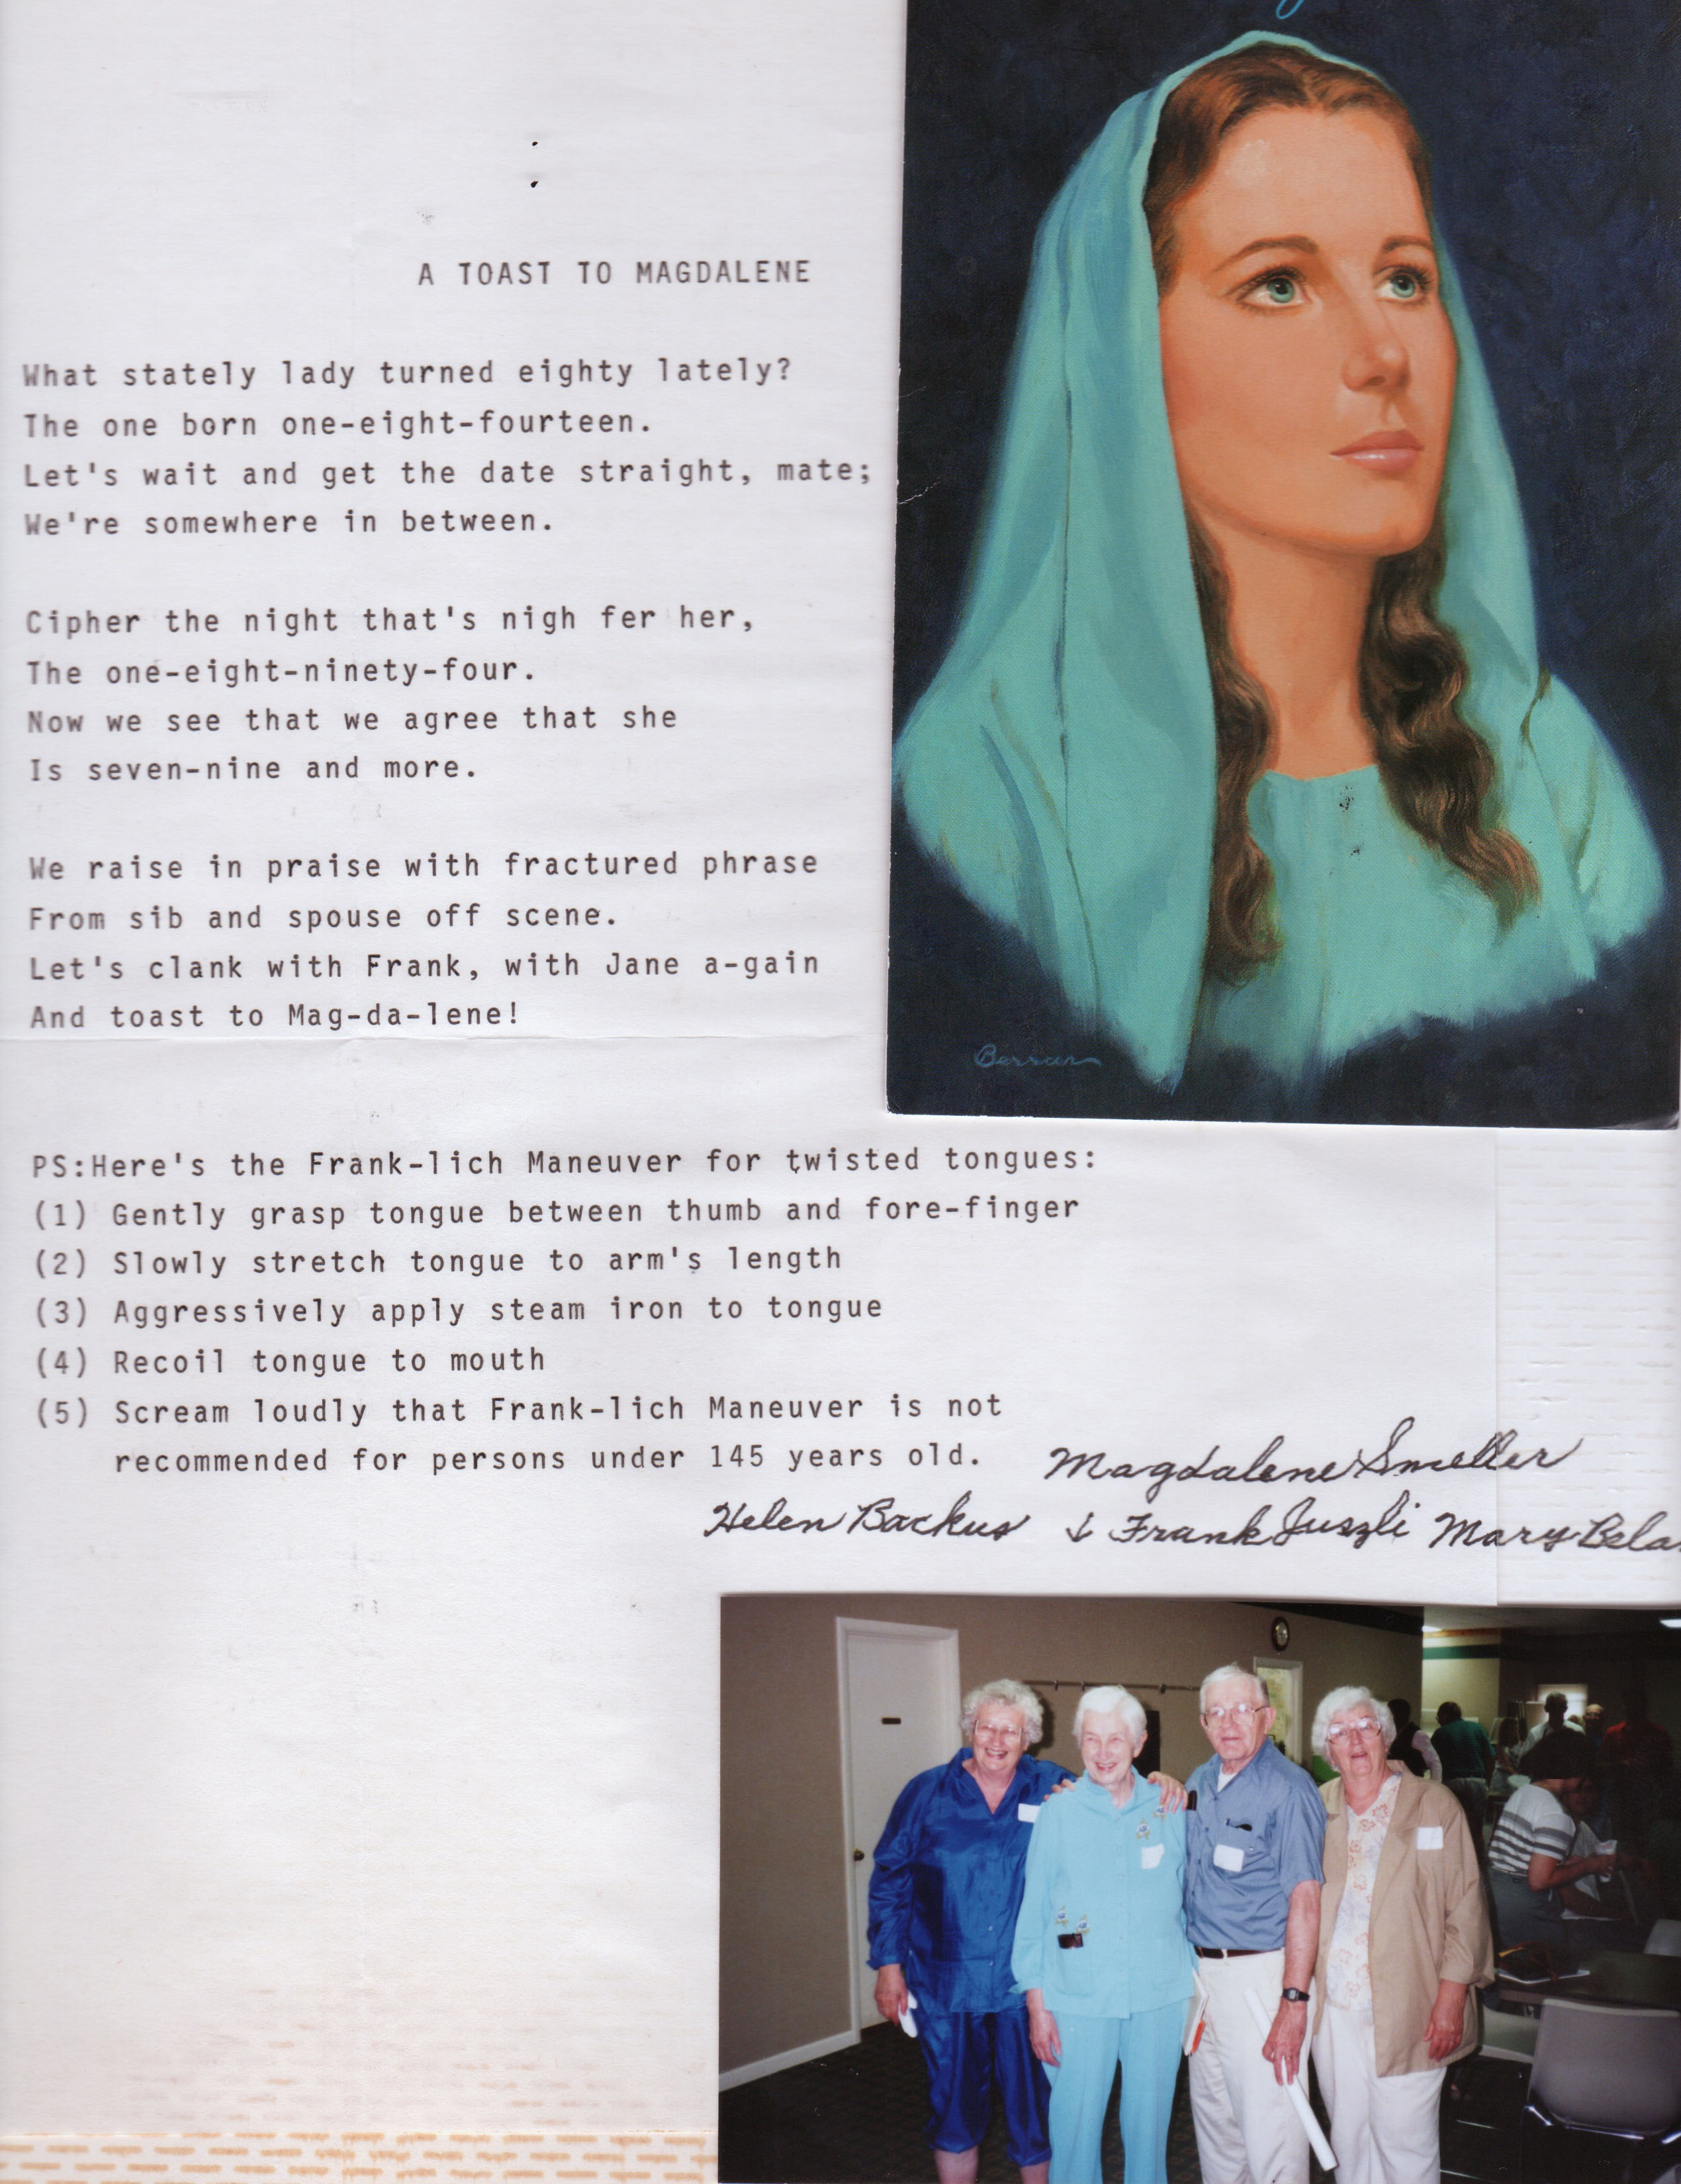 A TOAST TO MAGDALENE
What stately lady turned eighty lately?
The one born one-eight-fourteen.
Let's wait and get the date straight, mate;
We're somewhere in between.
Cipher the night that's nigh fer her,
The one-eight-ninety-four.
Now we see that we agree that she
Is seven-nine and more.
We raise in praise with fractured phrase
From sib and spouse off scene.
Let's clank with Frank, with Jane a-gain
And toast to Mag-da-lene!
PS:Here's the Frank-lich Maneuver for twisted tongues:
(1) Gently grasp tongue between thumb and fore-finger
(2) Slowly stretch tongue to arm's length
(3) Aggressively apply steam iron to tongue
(4) Recoil tongue to mouth
(5) Scream loudly that Frank-lich Maneuver is not
recommended for persons under 145 years old.
Magdalene Smeller
Helen Backus ↓ Frank Juszli Mary Bela